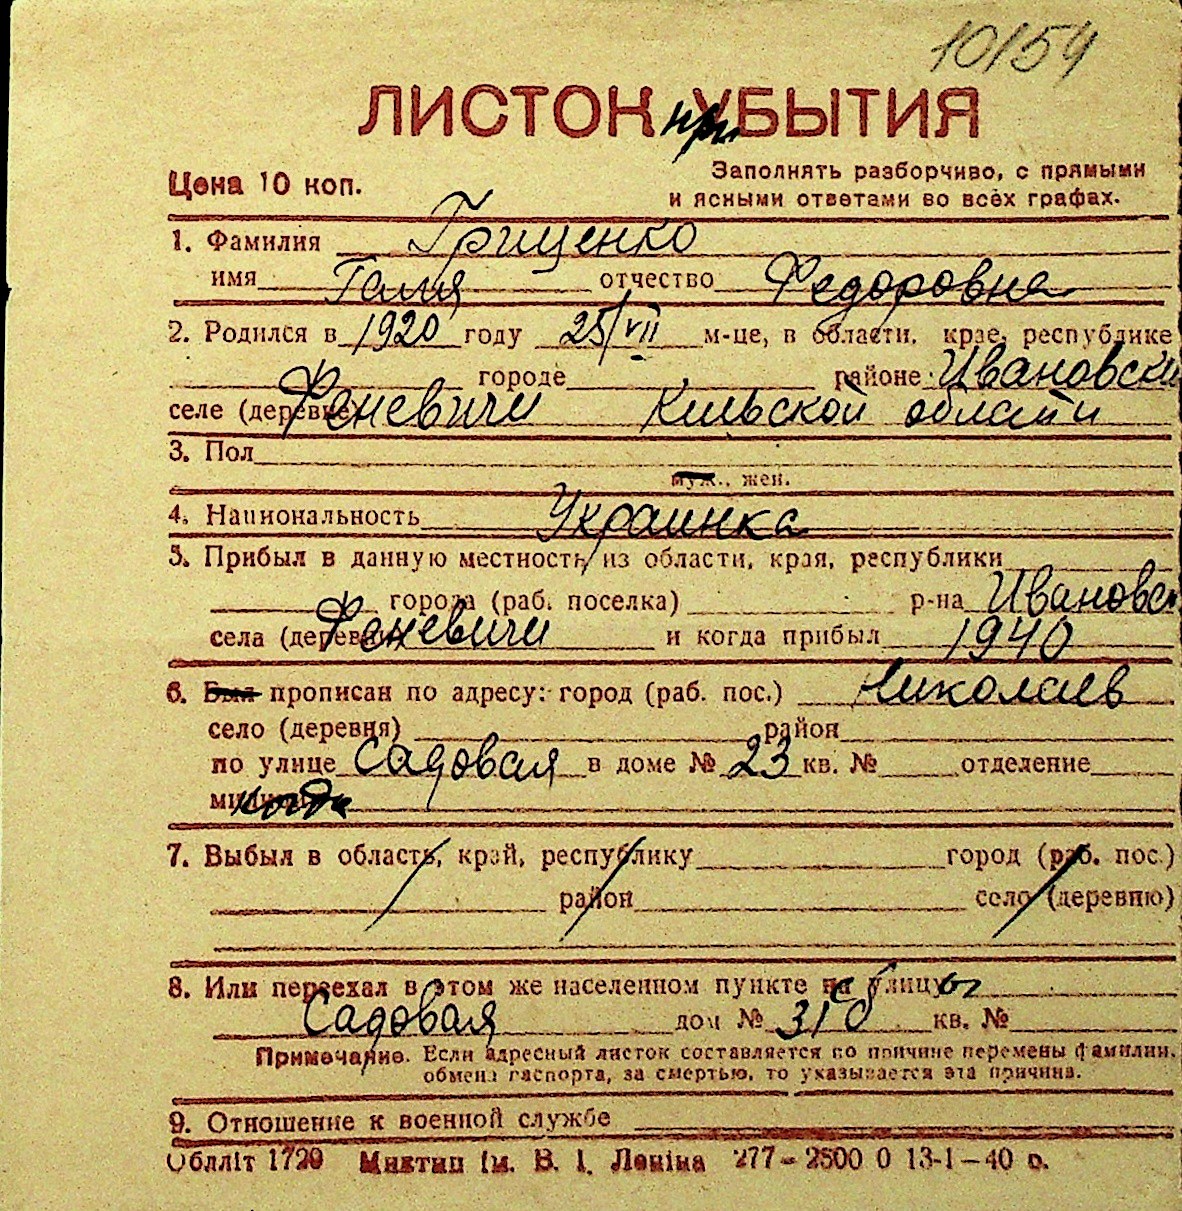 10/54
ЛИСТОК при УБЫТИЯ
Цена 10 коп.
Заполнять разборчиво, с прямыми
и ясными ответами во всех графах.
1. Фамилия Грищенко
имя Галия отчество Федоровна
2. Родился в 1920 году 25/VII м-це, в области, крае, республике
городе районе Ивановски
селе (деревне) Феневичи Киевской области
3. Пол
муж., жен.
4. Национальность Украинка
5. Прибыл в данную местность из области, края, республики
города (раб. поселка) р-на Ивановск
села (деревни) Феневичи и когда прибыл 1940
6. Был прописан по адресу: город (раб. пос.) Николаев
село (деревня) район
по улице Садовая в доме № 23 кв. № отделение
милиции
7. Выбыл в область, край, республику город (раб. пос.)
район село (деревню)
8. Или переехал в этом же населенном пункте на улицу
Садовая дом № 31 кв. №
Примечание. Если адресный листок составляется по причине перемены фамилии,
обмена паспорта, за смертью, то указывается эта причина.
9. Отношение к военной службе
Обллiт 1720 Миктип iм. В. I. Ленiна 277–2500 0 13-I–40 р.